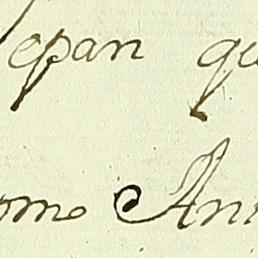 epan qu
omo Ant